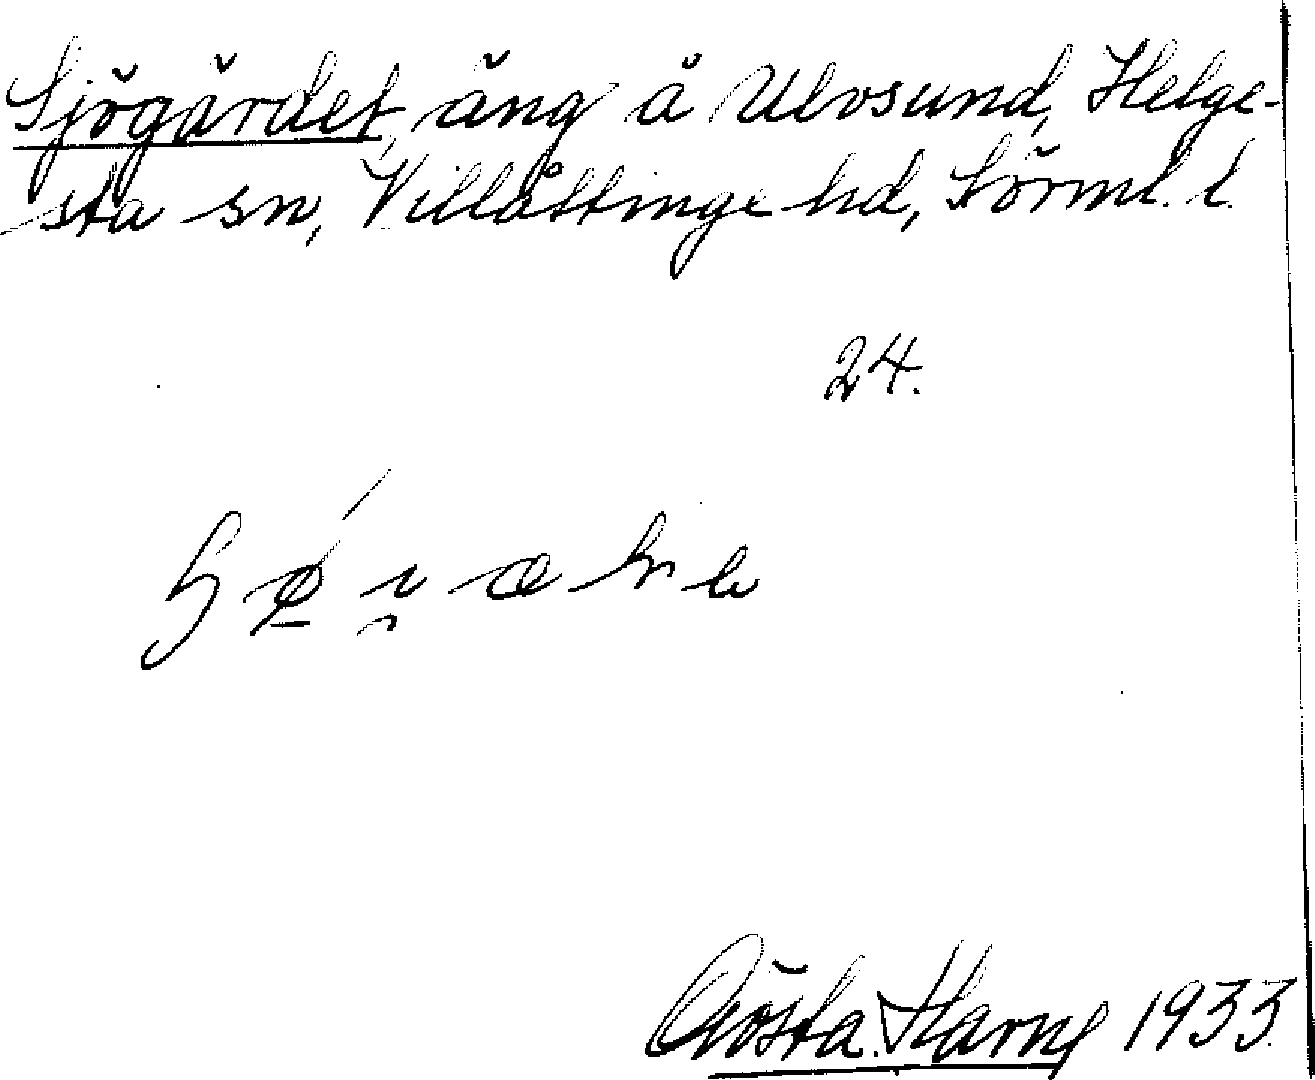 Sjögärdet, äng å Ulvsund, Helge-
sta sn, Villåttinge hd, Sörml. l.
24.
Gösta Harne 1933.